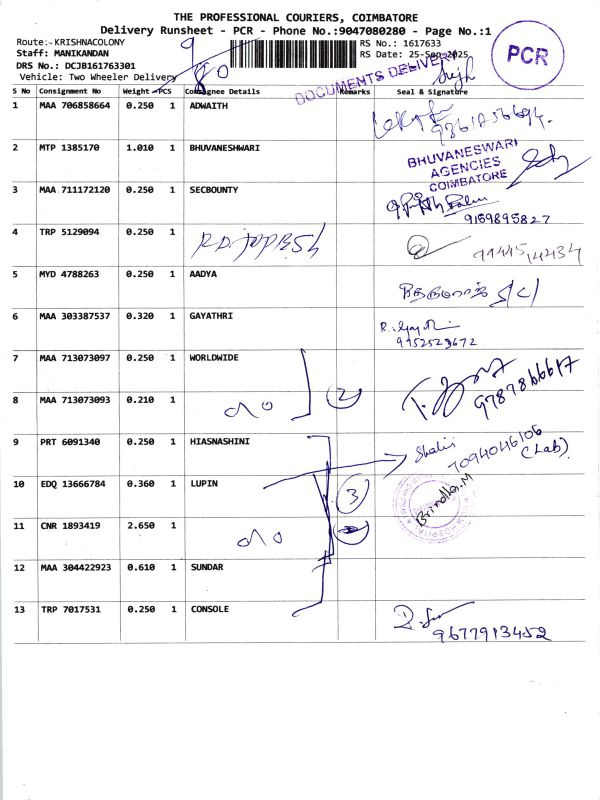 THE PROFESSIONAL COURIERS, COIMBATORE
Delivery Runsheet - PCR - Phone No.:9047080280 - Page No.:1
Route:- KRISHNACOLONY
Staff: MANIKANDAN
DRS No.: DCJB161763301
Vehicle: Two Wheeler Delivery
RS No.: 1617633
RS Date: 25-Sep-2025
PCR
DOCUMENTS DELIVE
S No Consignment No Weight PCS Consignee Details Remarks Seal & Signature
1 MAA 706858664 0.250 1 ADWAITH
2 MTP 1385170 1.010 1 BHUVANESHWARI
BHUVANESWARI
AGENCIES
COIMBATORE
3 MAA 711172120 0.250 1 SECBOUNTY
9159895827
4 TRP 5129094 0.250 1
5 MYD 4788263 0.250 1 AADYA
6 MAA 303387537 0.320 1 GAYATHRI
9952523672
7 MAA 713073097 0.250 1 WORLDWIDE
8 MAA 713073093 0.210 1
2
9 PRT 6091340 0.250 1 HIASNASHINI
Shalini
7094046106
(Lab)
10 EDQ 13666784 0.360 1 LUPIN
3
Brindha.M
11 CNR 1893419 2.650 1
12 MAA 304422923 0.610 1 SUNDAR
13 TRP 7017531 0.250 1 CONSOLE
9677913452